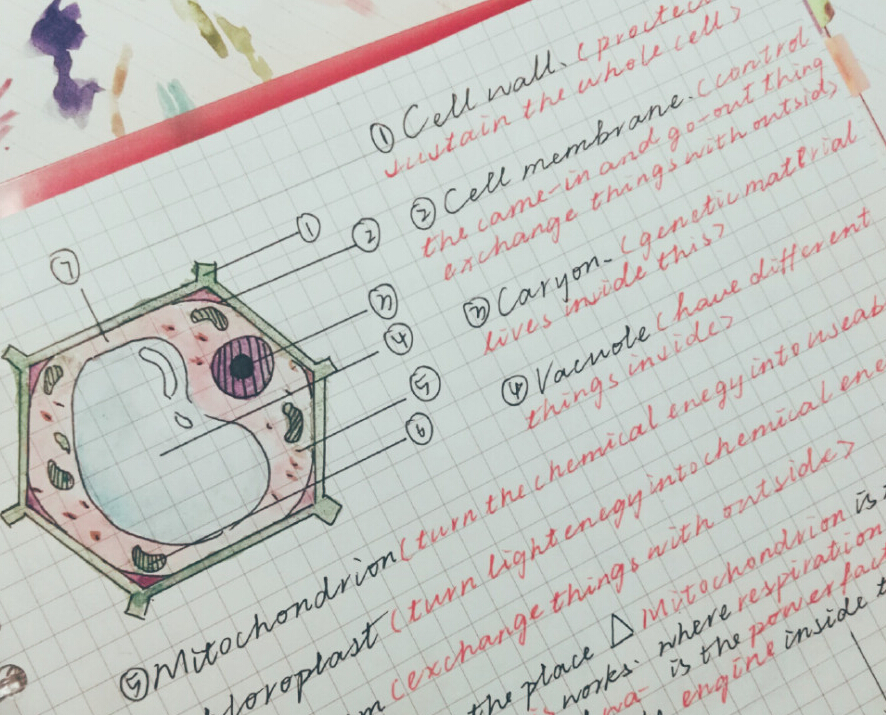 ① Cell wall. (protect
sustain the whole cell)
② Cell membrane. (control
the came-in and go-out thing
exchange things with outside)
③ Caryon. (genetic material
lives inside this)
④ Vacuole (have different
things inside)
⑤ Mitochondrion (turn the chemical enegy into useab
loroplast (turn light enegy into chemical ene
m (exchange things with outside)
the place △ Mitochondrion is
works. where respiration
is the power fact
engine inside t
①
②
③
④
⑤
⑥
⑦